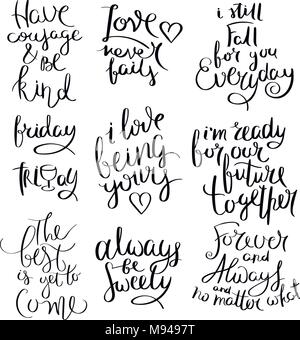 Have
courage
& Be
kind
Love
never
fails
i still
Fall
for you
Everyday
friday
friyay
i love
being
yours
i'm ready
for our
future
together
The
best
is yet to
Come
always
be
sweety
Forever
and
Always
and
no matter what
alamy
M9497T